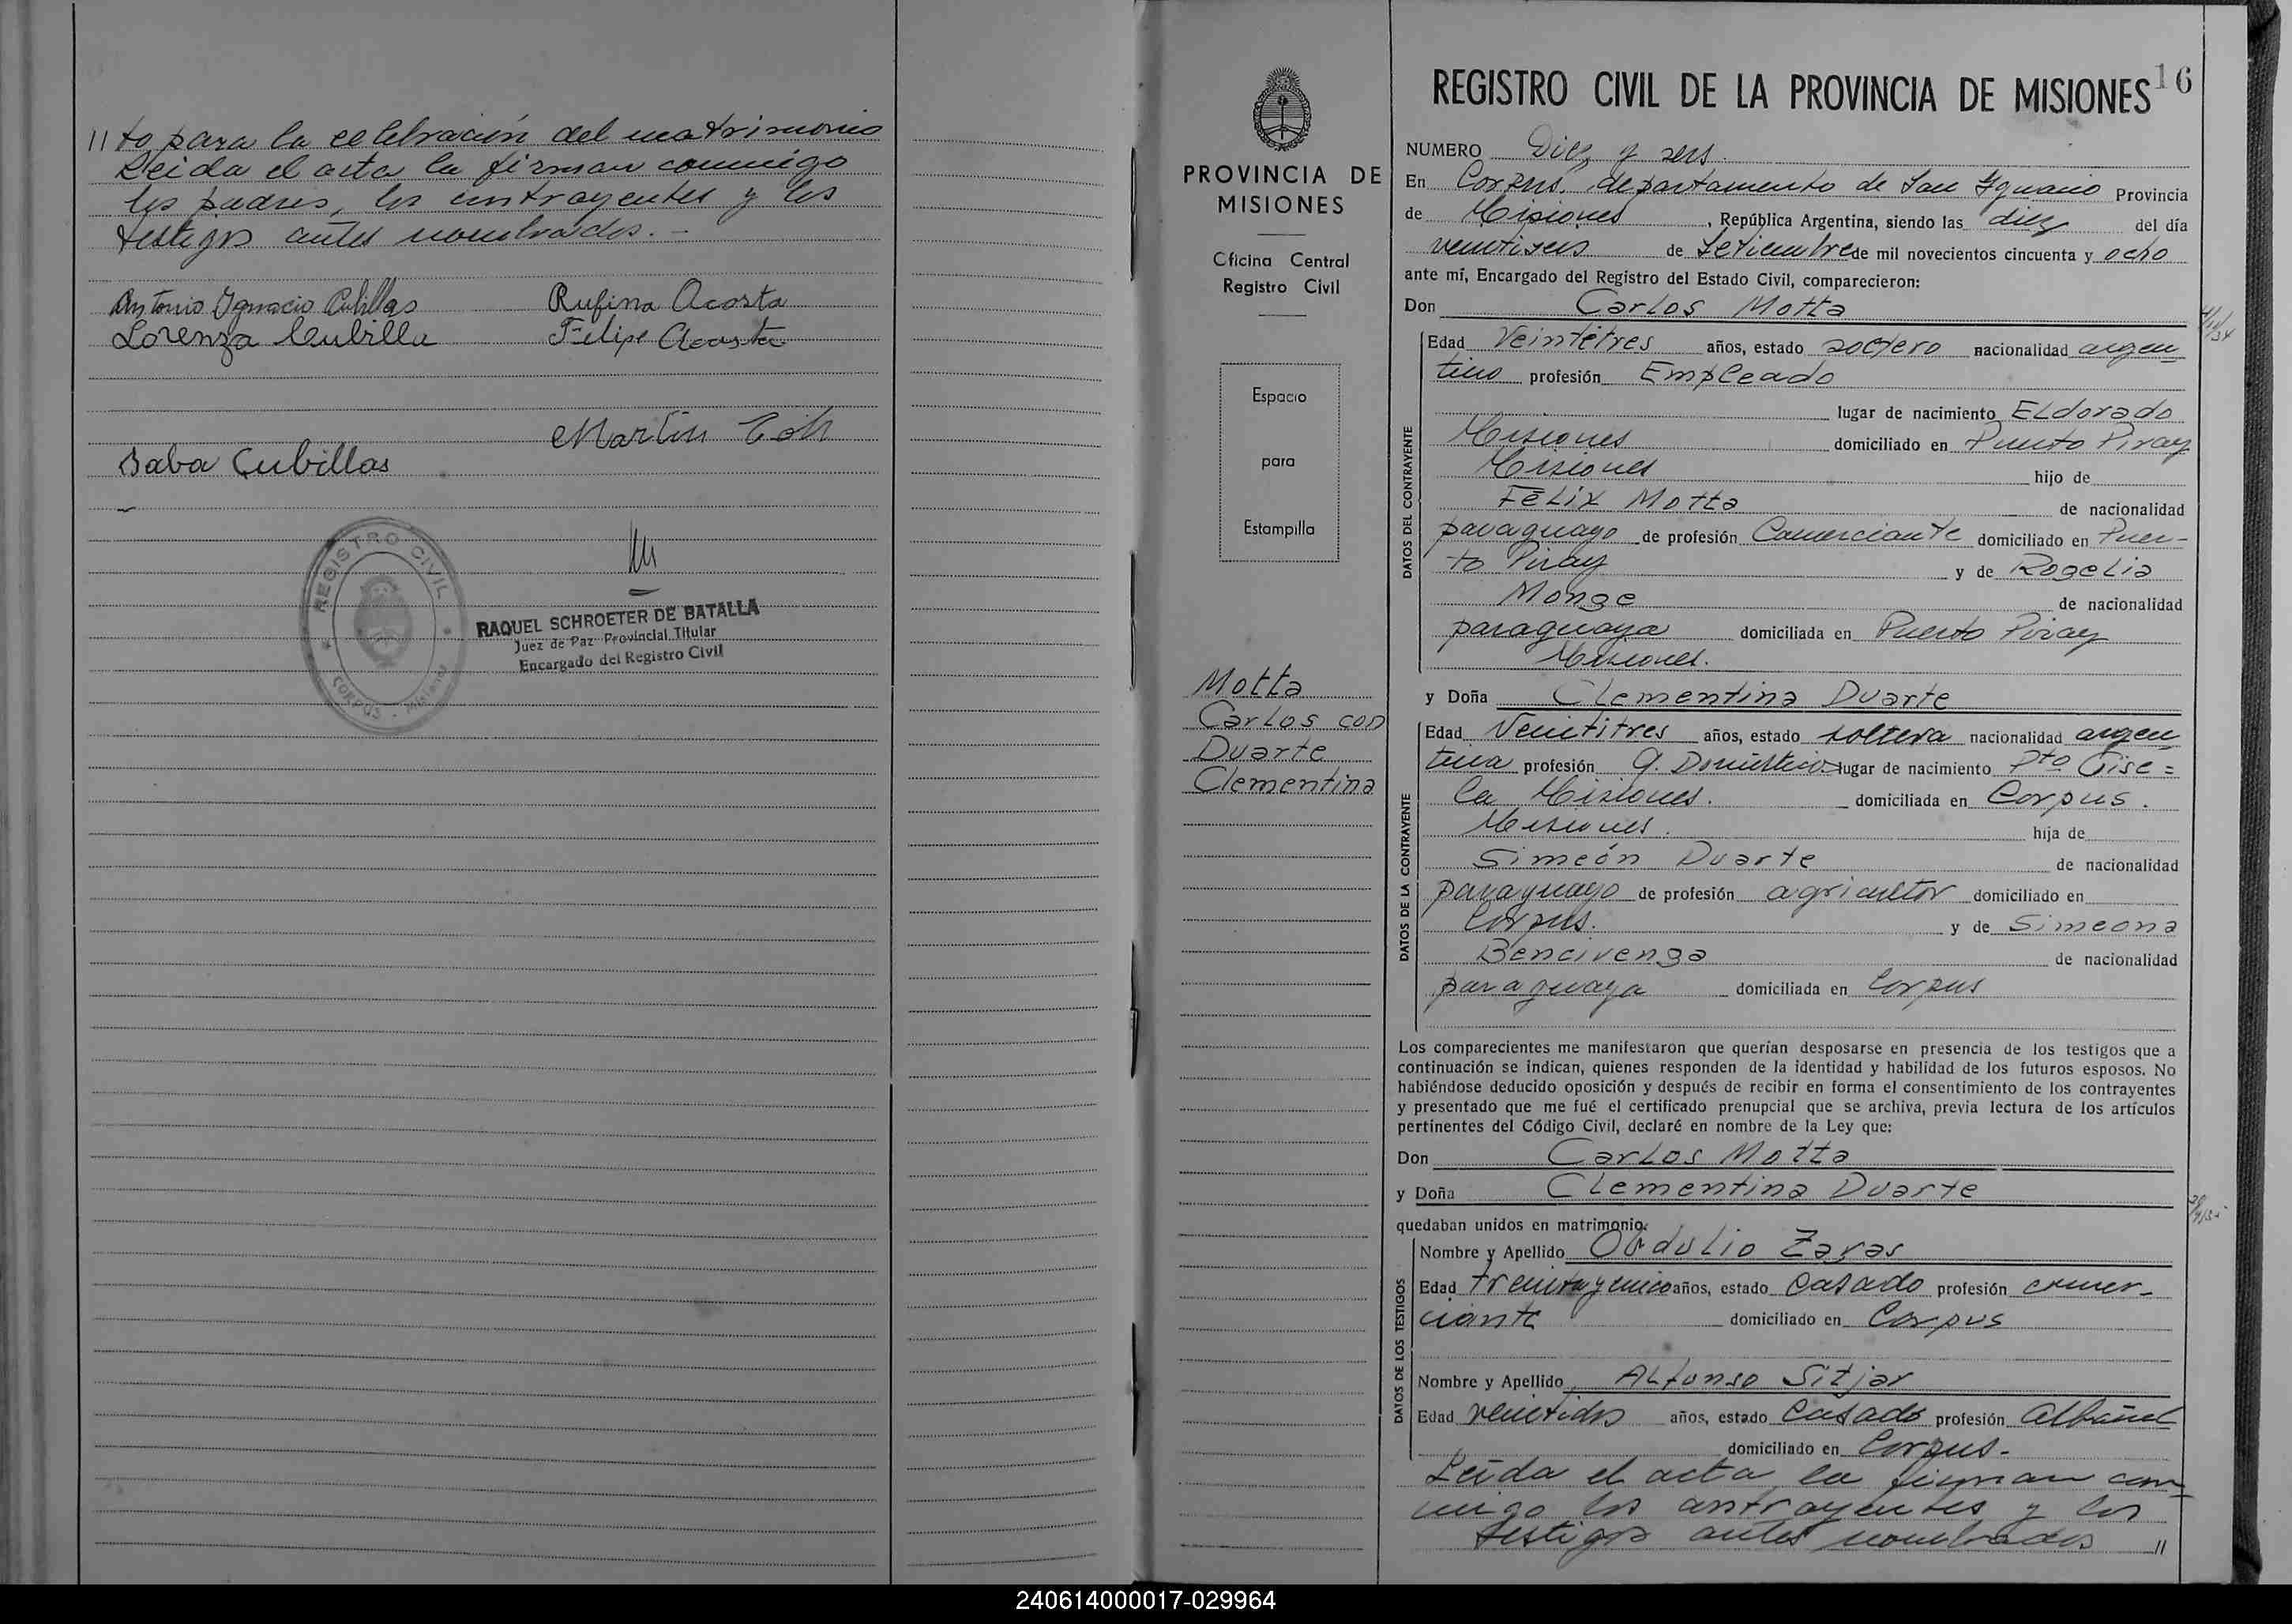 // to para la celebración del matrimonio
Leida el acta la firman conmigo
los padres, los contrayentes y los
testigos antes nombrados. -
Antonio Ignacio Cubillas Rufina Acosta
Lorenza Cubilla Felipe Acosta
Martin
Saba Cubillas
REGISTRO CIVIL
CORPUS - Misiones
RAQUEL SCHROETER DE BATALLA
Juez de Paz Provincial Titular
Encargado del Registro Civil
PROVINCIA DE
MISIONES
Oficina Central
Registro Civil
Espacio
para
Estampilla
Motta
Carlos con
Duarte
Clementina
REGISTRO CIVIL DE LA PROVINCIA DE MISIONES 16
NUMERO Diez y seis.
En Corpus, departamento de San Ignacio Provincia
de Misiones, República Argentina, siendo las diez del día
veintiseis de Setiembre de mil novecientos cincuenta y ocho
ante mí, Encargado del Registro del Estado Civil, comparecieron:
Don Carlos Motta
DATOS DEL CONTRAYENTE
Edad Veintitres años, estado soltero nacionalidad argen-
tino profesión Empleado
lugar de nacimiento Eldorado
Misiones domiciliado en Puerto Piray
Misiones hijo de
Felix Motta de nacionalidad
paraguayo de profesión Comerciante domiciliado en Puer-
to Piray y de Rogelia
Monge de nacionalidad
paraguaya domiciliada en Puerto Piray
Misiones.
y Doña Clementina Duarte
DATOS DE LA CONTRAYENTE
Edad Veintitres años, estado soltera nacionalidad argen
tina profesión Q. Domésticos lugar de nacimiento Pto Gise=
la Misiones. domiciliada en Corpus.
Misiones. hija de
Simeón Duarte de nacionalidad
paraguayo de profesión agricultor domiciliado en
Corpus. y de Simeona
Bencivenga de nacionalidad
paraguaya domiciliada en Corpus
Los comparecientes me manifestaron que querían desposarse en presencia de los testigos que a
continuación se indican, quienes responden de la identidad y habilidad de los futuros esposos. No
habiéndose deducido oposición y después de recibir en forma el consentimiento de los contrayentes
y presentado que me fué el certificado prenupcial que se archiva, previa lectura de los artículos
pertinentes del Código Civil, declaré en nombre de la Ley que:
Don Carlos Motta
y Doña Clementina Duarte
quedaban unidos en matrimonio.
DATOS DE LOS TESTIGOS
Nombre y Apellido Obdulio Zayas
Edad treinta y cinco años, estado Casado profesión comer-
ciante domiciliado en Corpus
Nombre y Apellido Alfonso Sitjar
Edad veintidos años, estado Casado profesión Albañil
domiciliado en Corpus-
Leida el acta la firman con
migo los contrayentes y los
testigos antes nombrados //
240614000017-029964